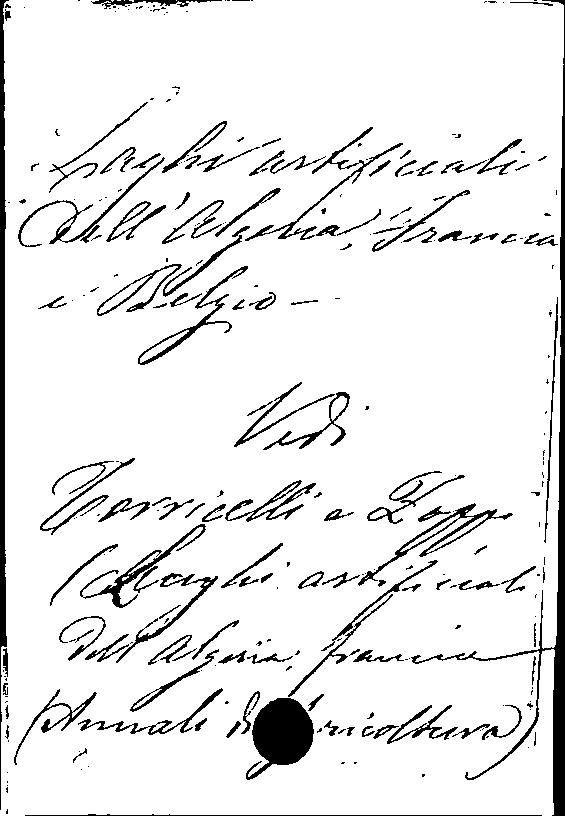 Laghi artificiali
dell'Algeria, Francia
e Belgio -
Vedi
Torricelli e Zoppi
(Laghi artificiali
dell'Algeria, Francia
(Annali di ricoltura)